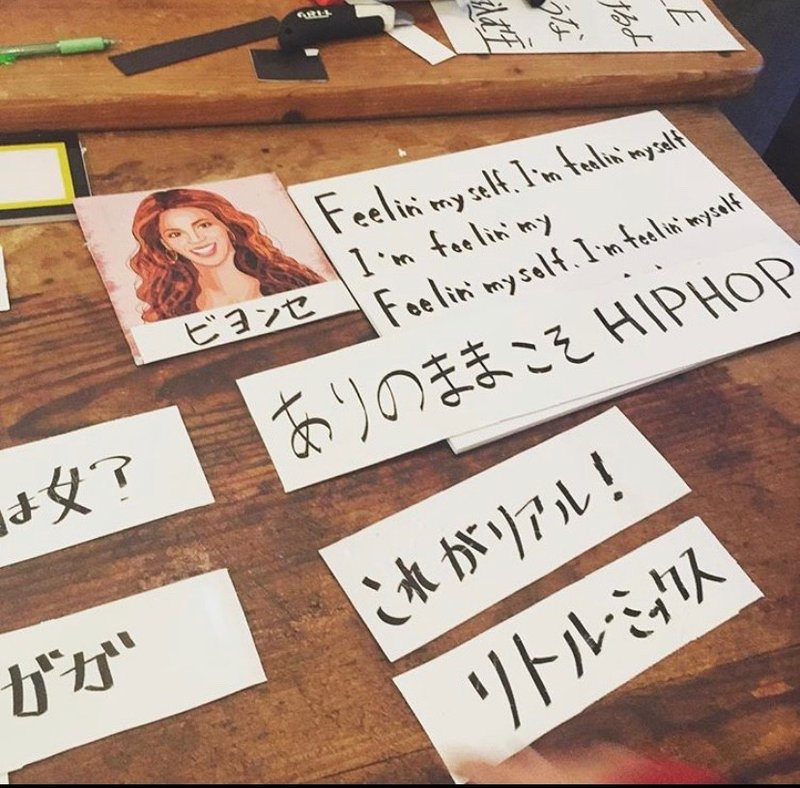 Feelin' myself. I'm feelin' myself
I'm feelin' my
Feelin' myself. I'm feelin' myself
ビヨンセ
ありのままこそ HIPHOP
は女?
これがリアル!
リトル・ミックス
ガガ